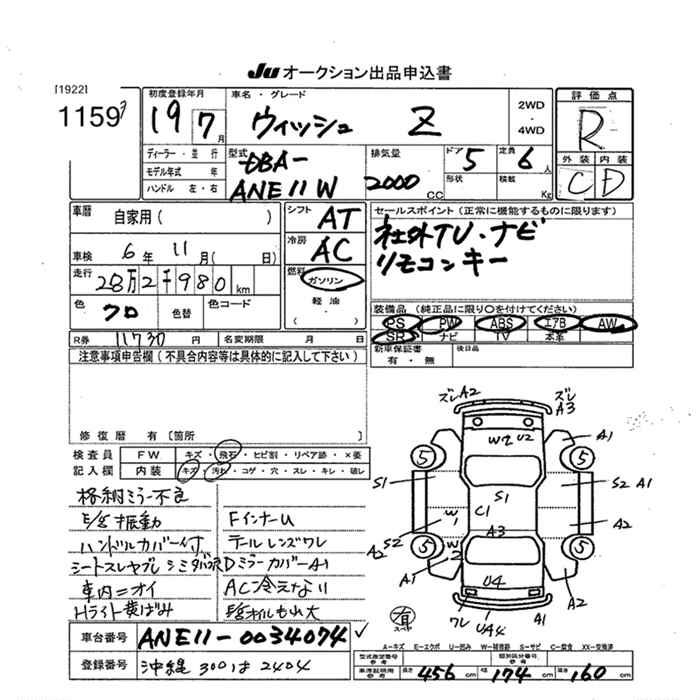 Ju オークション出品申込書
[1922]
1159
初度登録年月
19 7月
車名・グレード
ウィッシュ Z
2WD
・
4WD
評価点
R
外装 内装
C D
ディーラー・並行
モデル年式 年
ハンドル 左・右
型式
DBA-
ANE11W
排気量
2000 CC
ドア 5
形状
定員 6人
積載 Kg
車歴
自家用( )
車検 6年 11月( 日)
走行 28万2千980 km
色 クロ
色替
色コード
シフト AT
冷房 AC
燃料
ガソリン
軽油
( )
セールスポイント(正常に機能するものに限ります)
社外TV・ナビ
リモコンキー
装備品(純正品に限り○を付けてください)
PS PW ABS エアB AW
SR ナビ TV 本革
新車保証書 後日品
有・無
R券 11730 円
名変期限 月 日
注意事項申告欄(不具合内容等は具体的に記入して下さい)
修復歴 有[箇所 ]
検査員 FW キズ・飛石・ヒビ割・リペア跡・×要
記入欄 内装 キズ・汚れ・コゲ・穴・スレ・キレ・破レ
格納ミラー不良
振動
ハンドルカバー付
シートスレヤブレシミ
車内ニオイ
Hライト黄ばみ
FインナーU
テールレンズワレ
DミラーカバーA1
AC冷えない
オイルもれ大
ズレ A2
ズレ A3
W2 U2
A1
5 5
S1
S1
S2 A1
W1
C1
A2
A3
A2 S2
5 5
W2
A1
U4
A2
ワレ
UA4
A1
有
スペヤ
車台番号 ANE11-0034074
登録番号 沖縄 300 は 2404
A-キズ E-エクボ U-凹み W-補修跡 S-サビ C-腐食 XX-交換済
型式指定番号
参考
類別区分番号
参考
車庫証明用
参考
長さ 456 cm 幅 174 cm 高さ 160 cm